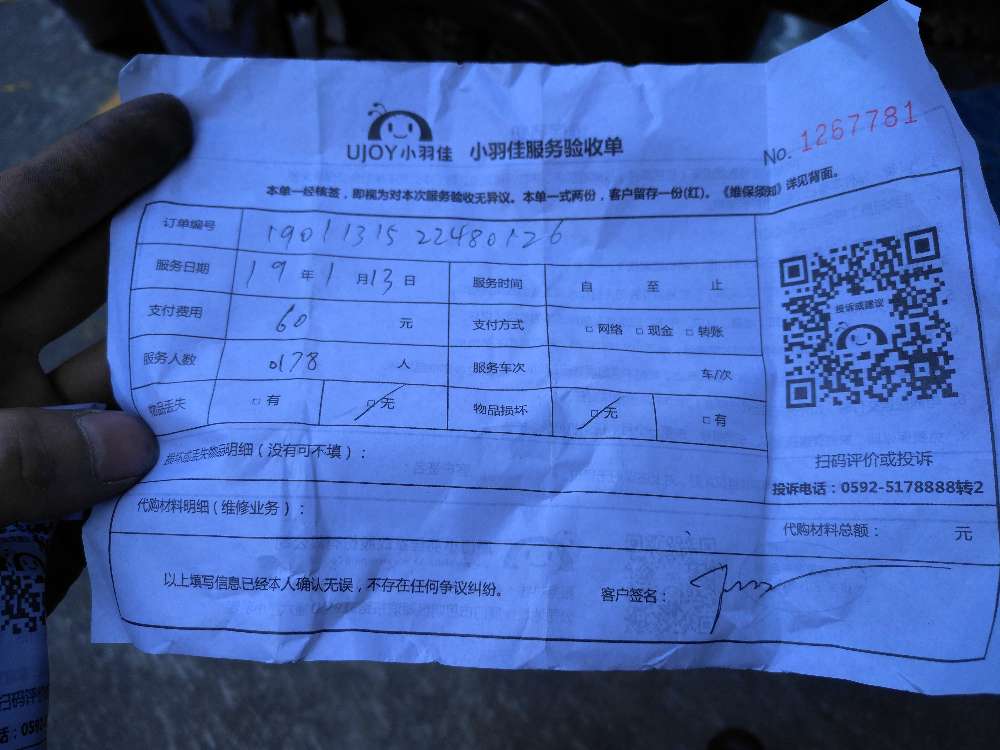 UJOY小羽佳 小羽佳服务验收单
No. 1267781
本单一经核签，即视为对本次服务验收无异议。本单一式两份，客户留存一份(红)。《维保须知》详见背面。
订单编号 1901131522480126
服务日期 19年1月13日 服务时间 自 至 止
支付费用 60 元 支付方式 □网络 □现金 □转账
服务人数 0178 人 服务车次 车/次
物品丢失 □有 □无 物品损坏 □无 □有
损坏或丢失物品明细（没有可不填）：
代购材料明细（维修业务）：
投诉或建议
扫码评价或投诉
投诉电话：0592-5178888转2
代购材料总额： 元
以上填写信息已经本人确认无误，不存在任何争议纠纷。
客户签名：